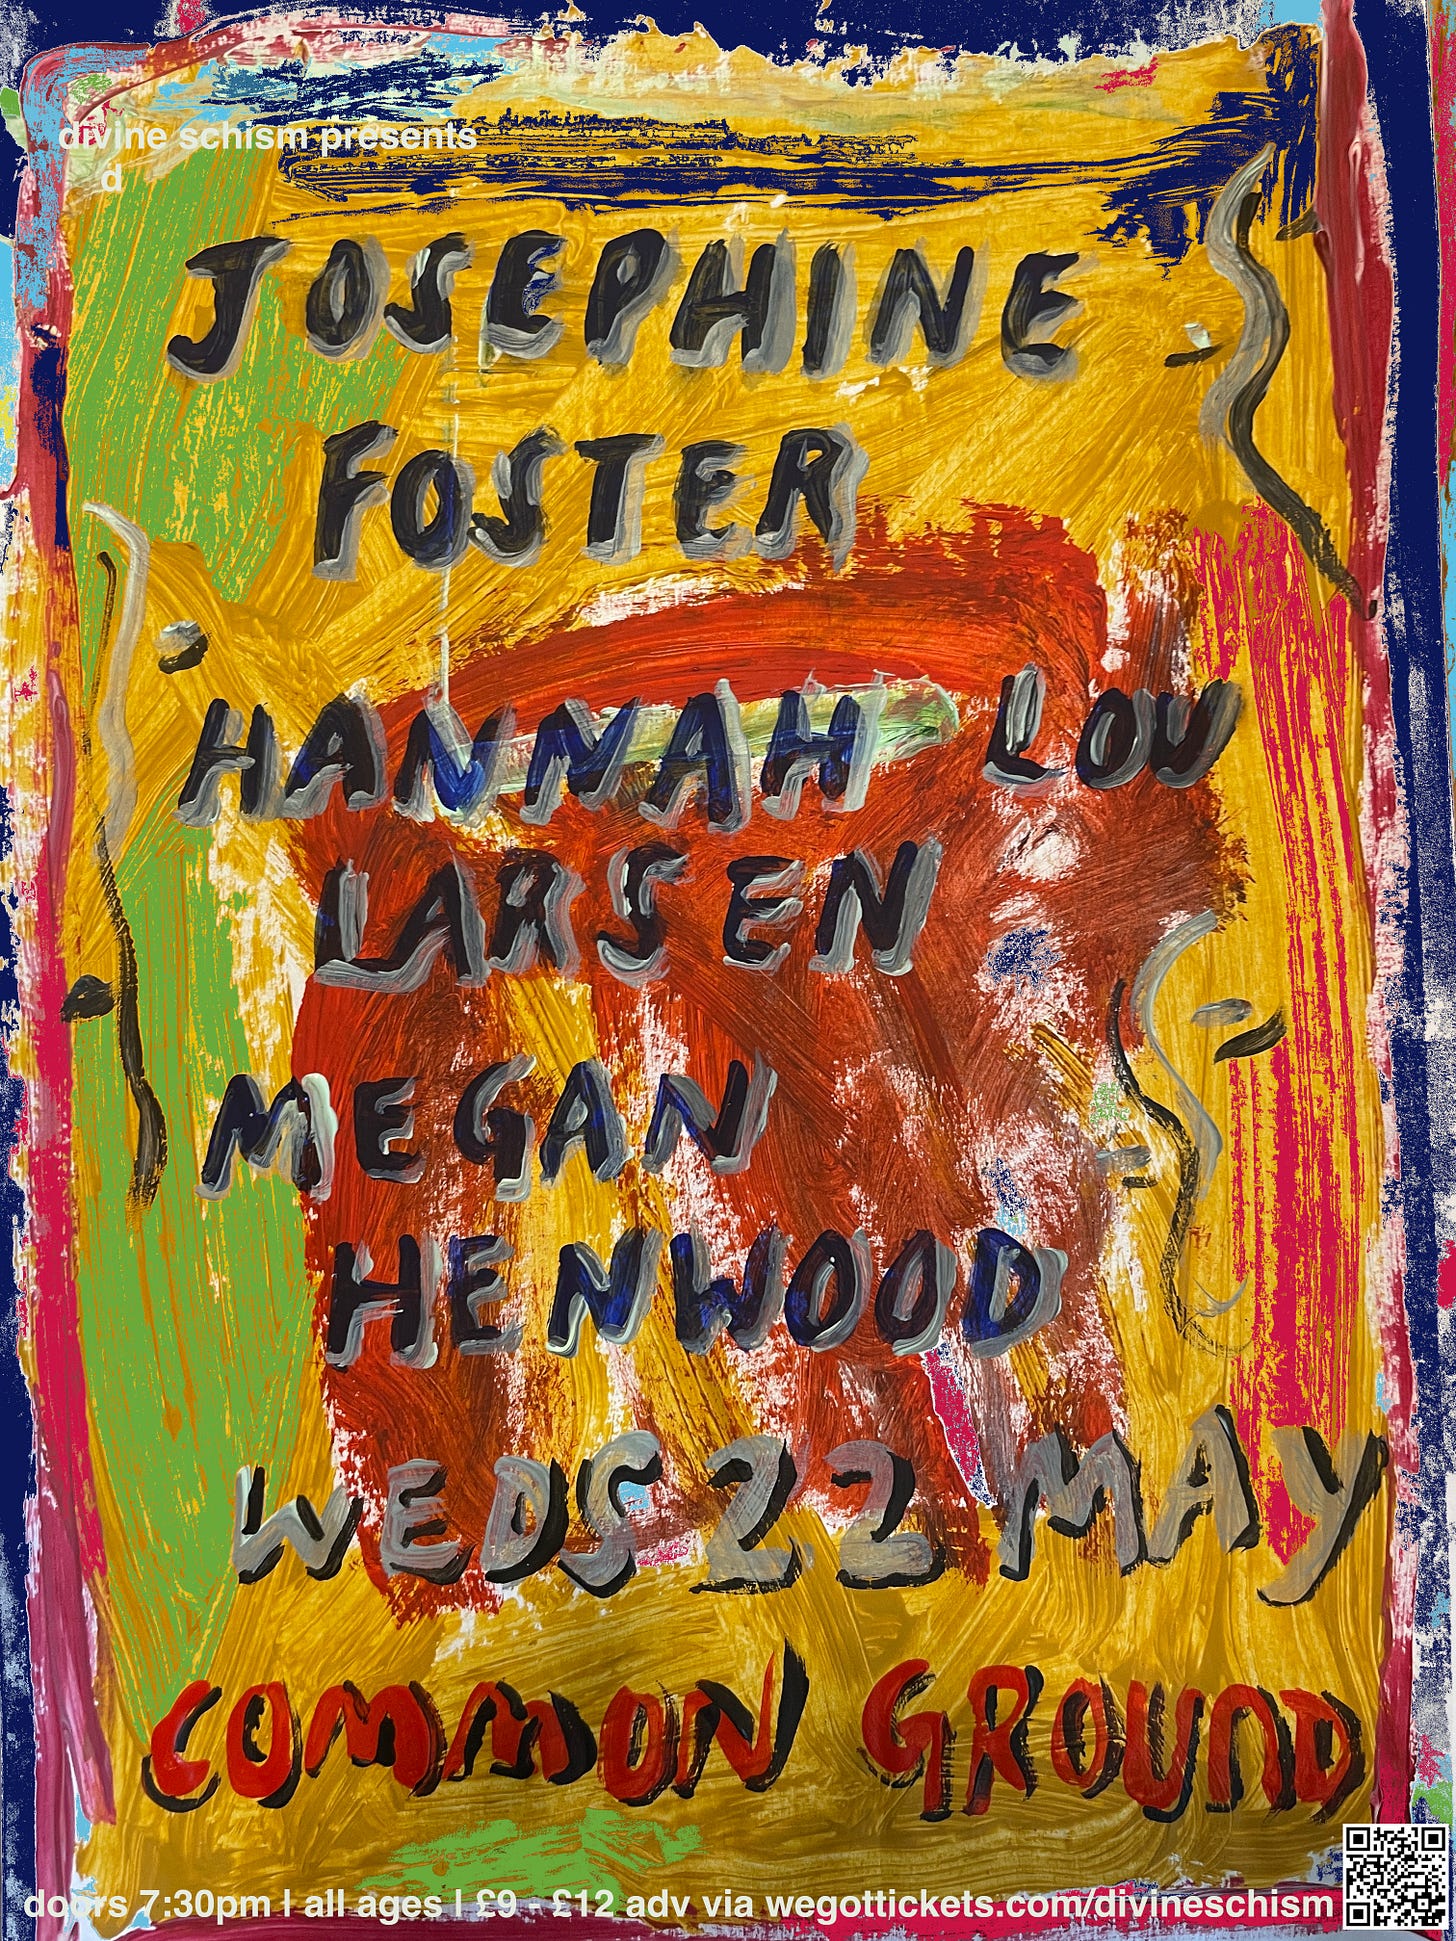 divine schism presents
d
JOSEPHINE
FOSTER
HANNAH LOU
LARSEN
MEGAN
HENWOOD
WEDS 22 MAY
COMMON GROUND
doors 7:30pm | all ages | £9 - £12 adv via wegottickets.com/divineschism